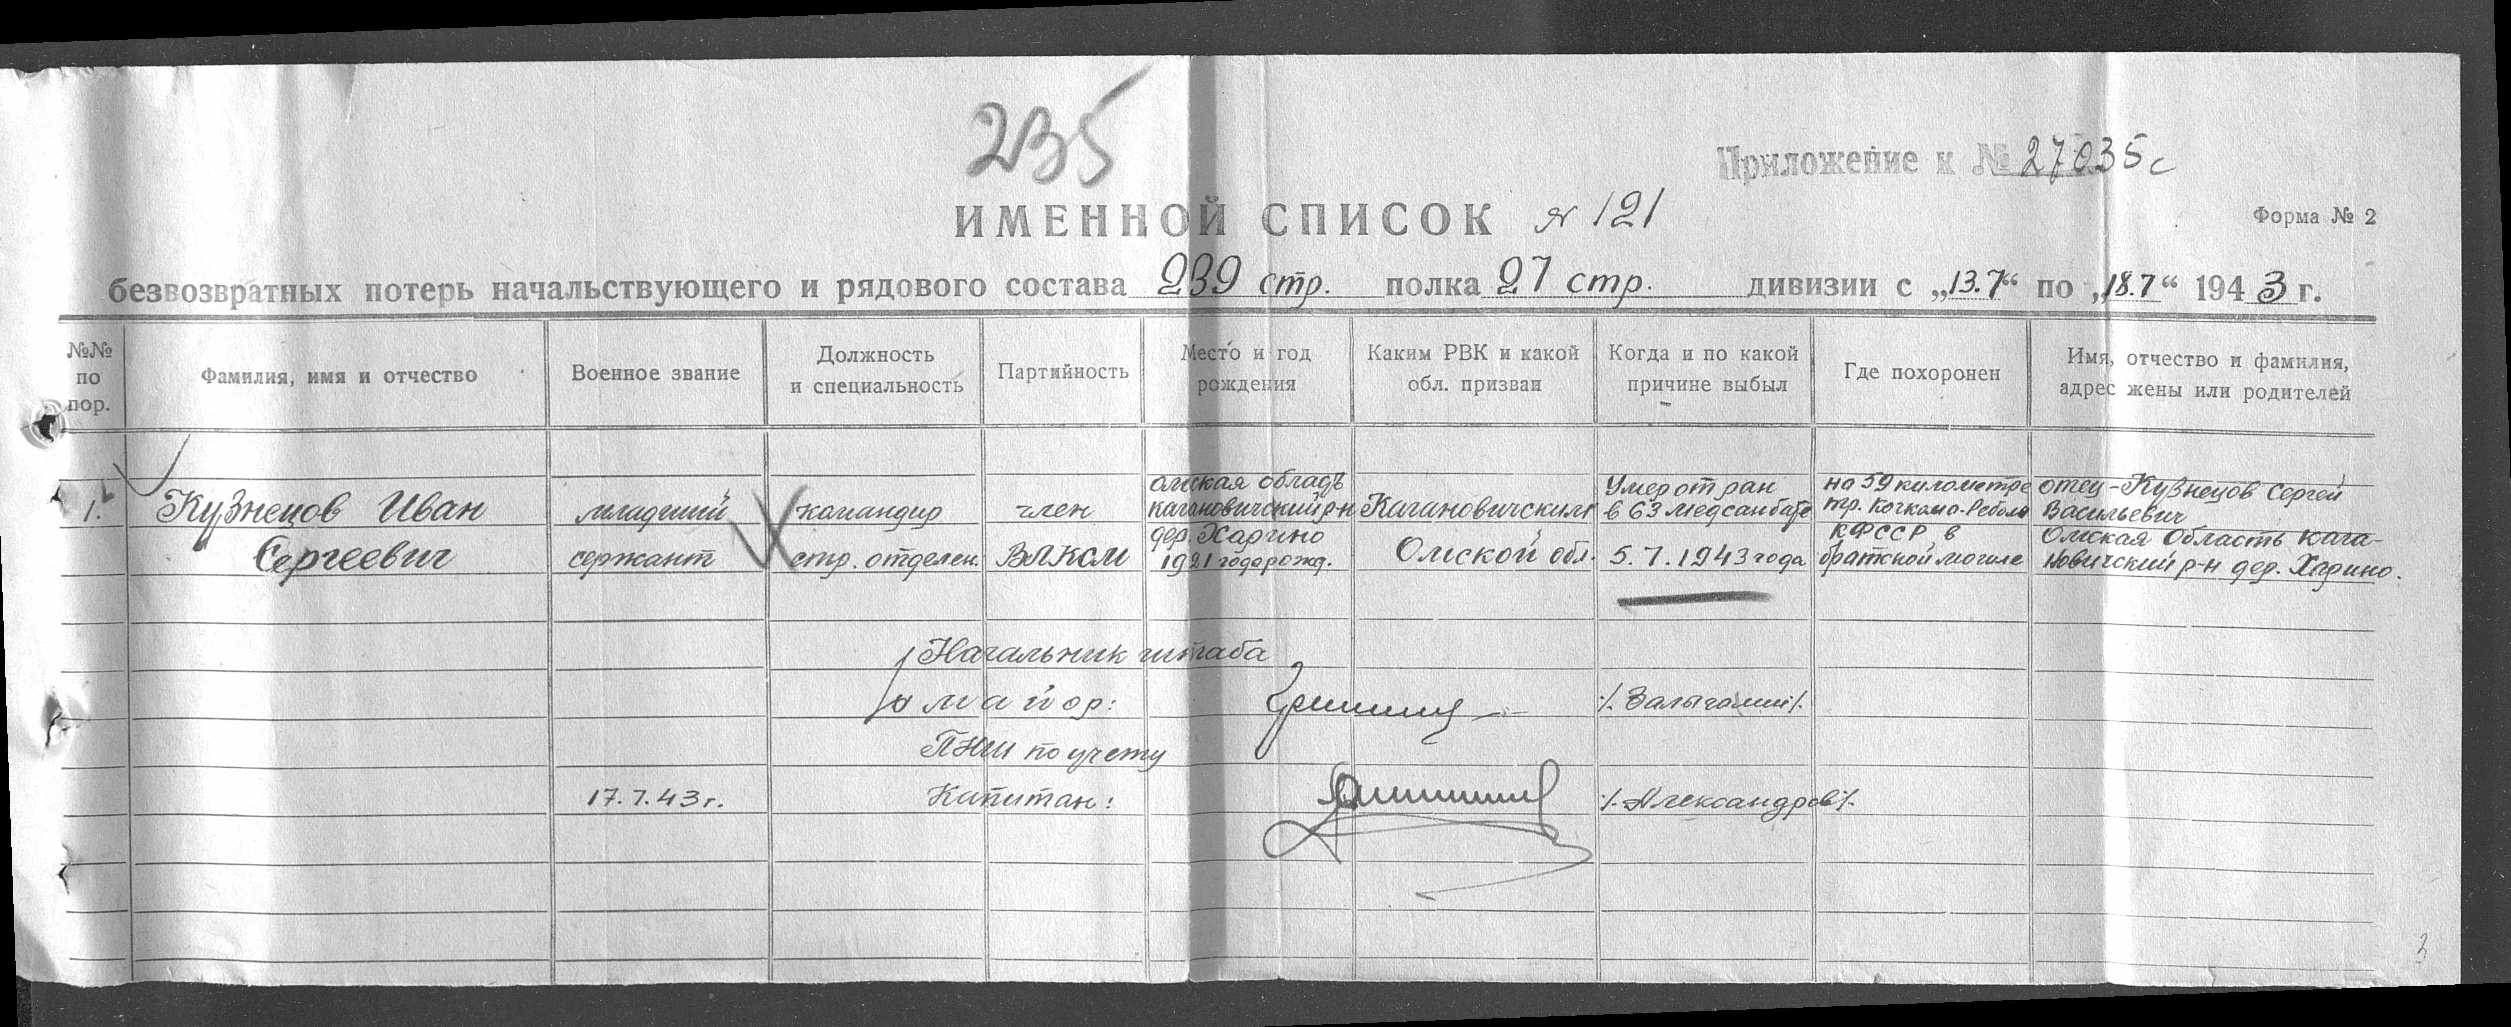 235
Приложение к № 27035с
ИМЕННОЙ СПИСОК № 121
Форма № 2
безвозвратных потерь начальствующего и рядового состава 239 стр. полка 27 стр. дивизии с „13.7“ по „18.7“ 1943 г.
№№ по пор.
Фамилия, имя и отчество
Военное звание
Должность
и специальность
Партийность
Место и год
рождения
Каким РВК и какой
обл. призван
Когда и по какой
причине выбыл
Где похоронен
Имя, отчество и фамилия,
адрес жены или родителей
1.
Кузнецов Иван
Сергеевич
младший
сержант
командир
стр. отделен.
член
ВЛКСМ
омская область
кагановичский р-н
дер. Харино
1921 года рожд.
Кагановичским
Омской обл.
Умер от ран
в 63 медсанбате
5.7.1943 года
на 59 километре
тр. Кочкома-Реболы
КФССР, в
братской могиле
отец - Кузнецов Сергей
Васильевич
Омская область кага-
новичский р-н дер. Харино.
Начальник штаба
майор:
ПНШ по учету
17.7.43 г.
Капитан:
/Александров/.
3